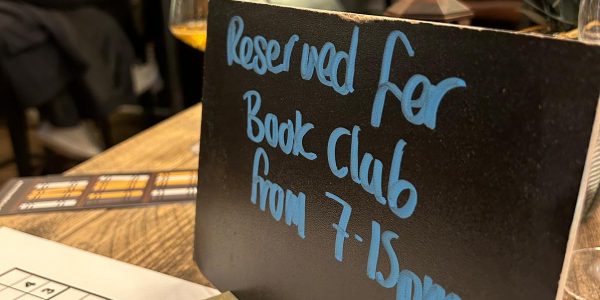 Reserved for
Book Club
from 7-15pm
4
3